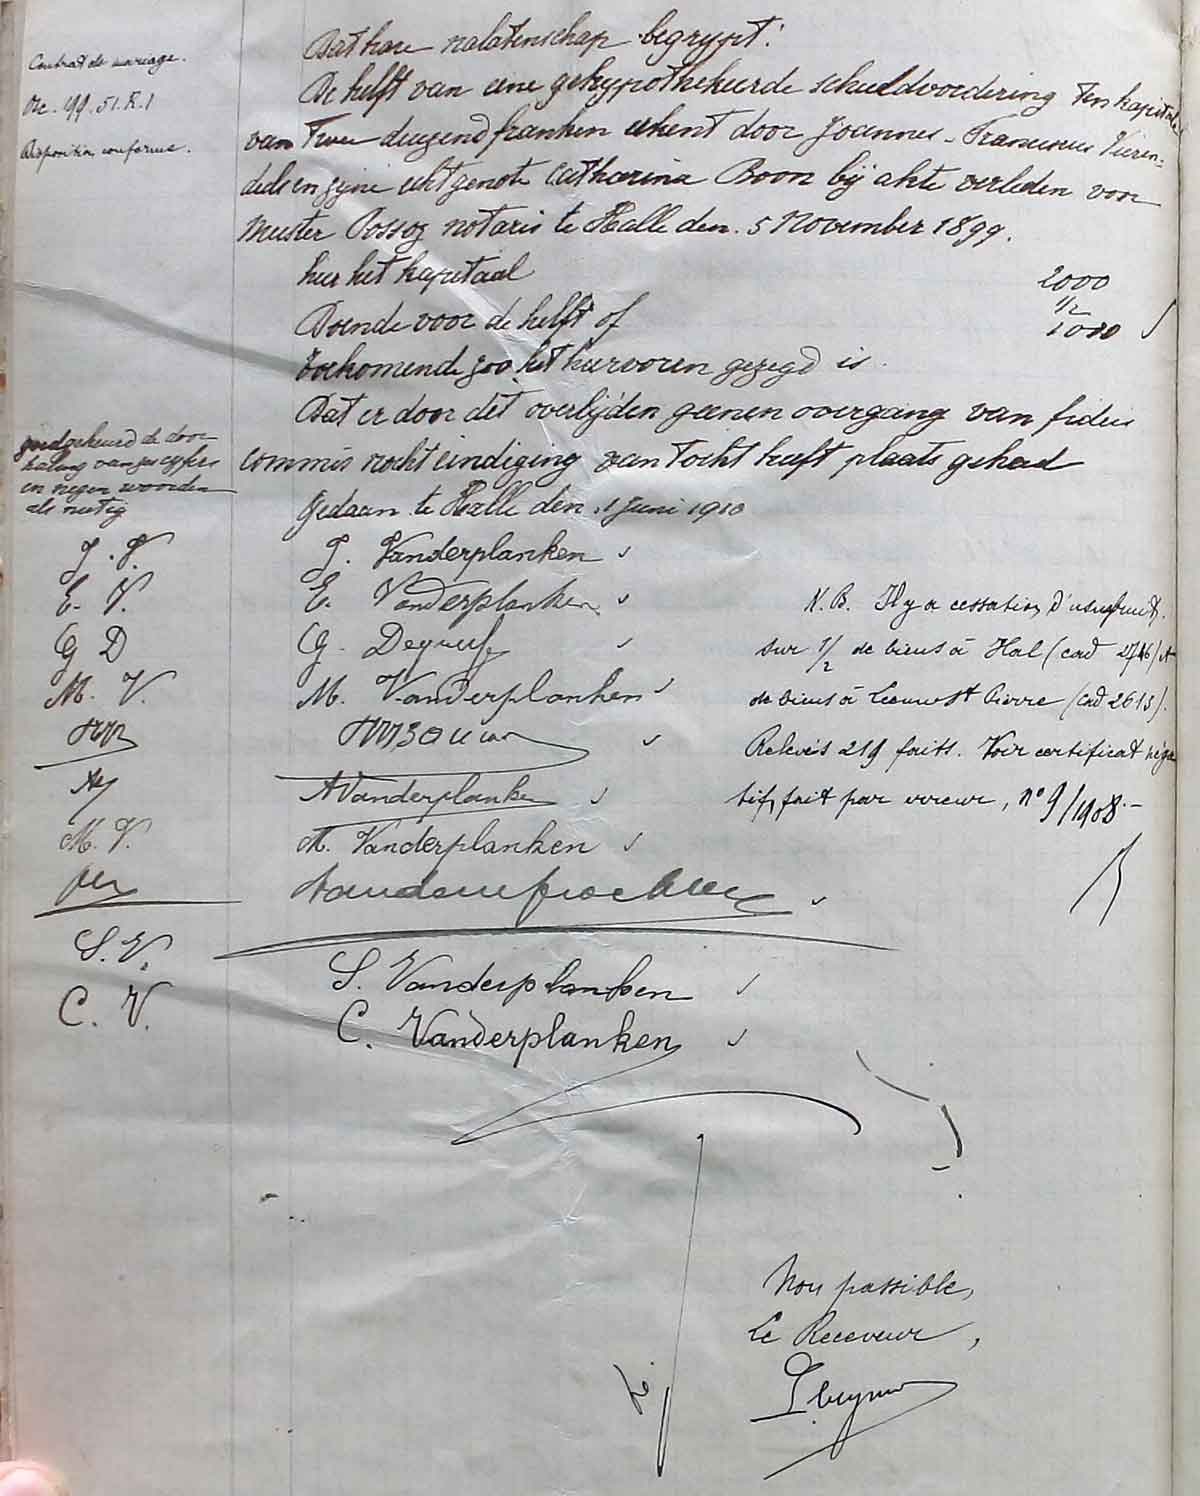 Contrat de mariage.
Dec. 199. 51. R. 1
Disposition conforme.
Dat hare nalatenschap begrypt:
De helft van eene gehypothekeerde schuldvordering ten kapitale
van twee duizend franken erkent door Joannes-Franciscus Vieren-
deels en zyne echtgenote Catharina Boon bij akte verleden voor
Meester Possoz notaris te Halle den 5 November 1899.
hier het kapitaal 2000
1/2
Doende voor de helft of 1000
Toekomende zoo het hiervoren gezegd is.
Dat er door dit overlijden geenen overgang van fideis
commis nocht eindiging van tocht heeft plaats gehad
Gedaan te Halle den 1 Juni 1910
goedgekeurd de door
haling van zes cyfers
en negen woorden
als nietig
J. V.
E. V.
G D
M. V.
M. V.
S. V.
C. V.
J. Vanderplanken
E. Vanderplanken
G. Degreef
M. Vanderplanken
AVanderplanken
M. Vanderplanken
S. Vanderplanken
C. Vanderplanken
N.B. Il y a cessation d'usufruit
sur 1/2 de biens à Hal (cad 2746) et
de biens à Leeuw St Pierre (cad 2613).
Relevés 219 faits. Voir certificat néga
tif, fait par erreur, n° 9/1908.-
Non passible,
Le Receveur,